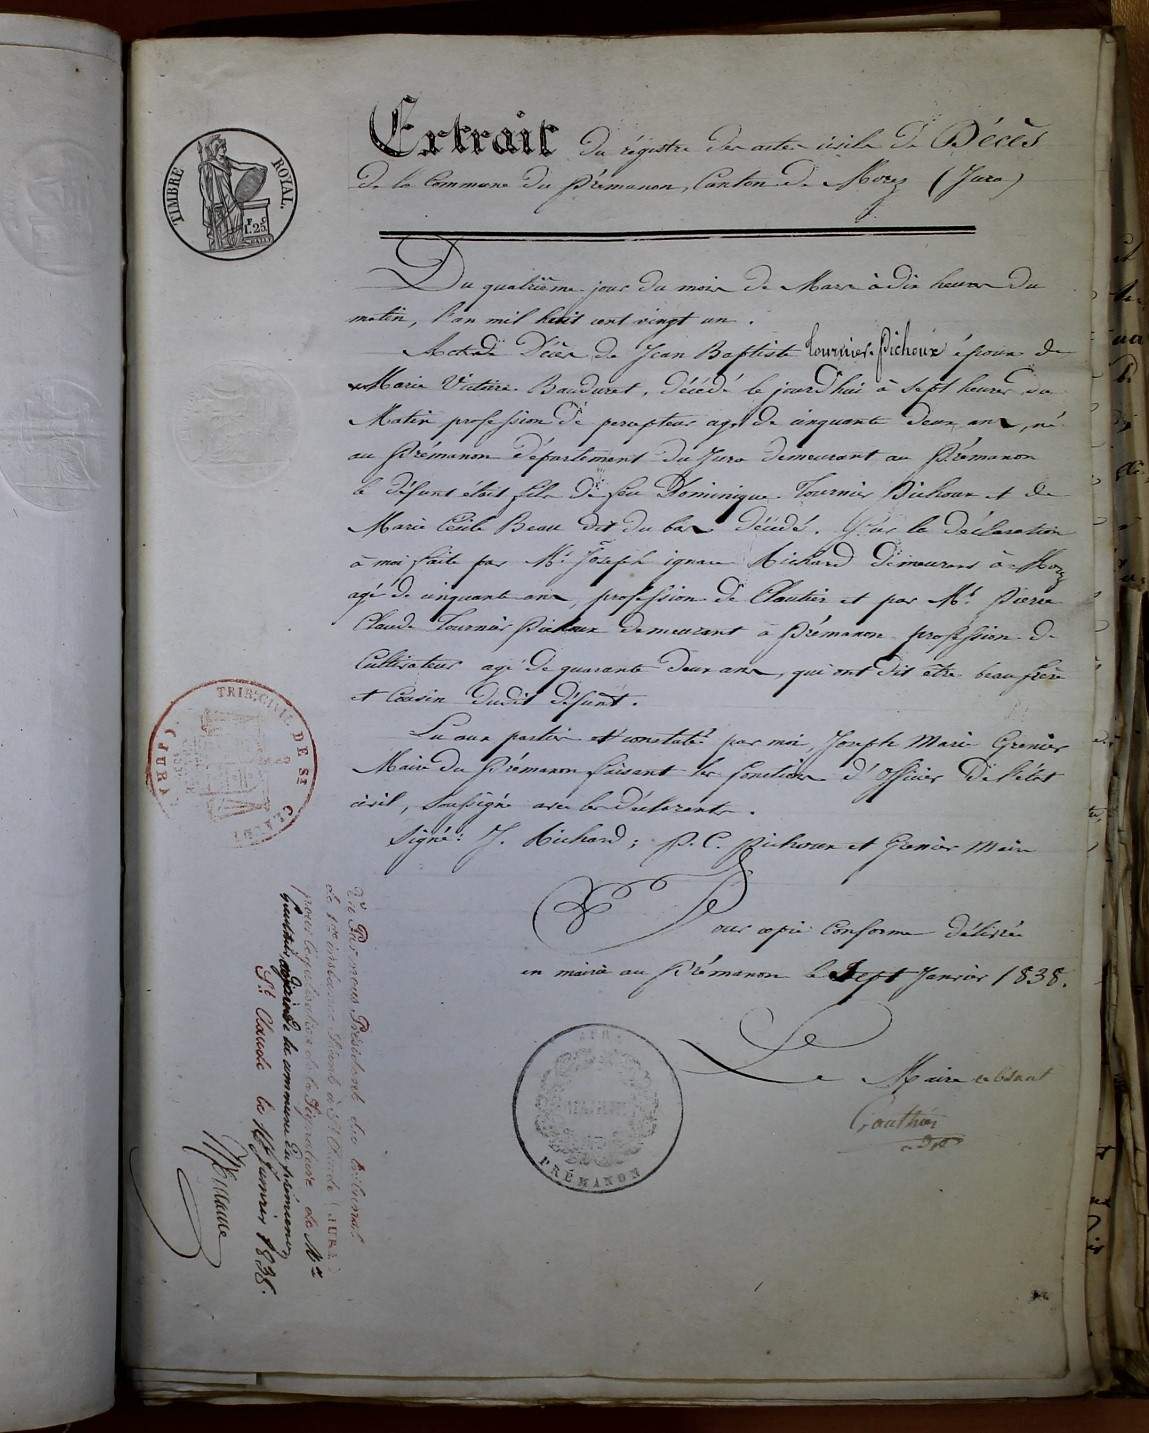 TIMBRE ROYAL.
1 F. 25 C.
Extrait du régistre des actes civils de Décès
de la Commune du Prémanon, Canton de Morez (Jura)
Du quatrième jour du mois de Mars à dix heures du
matin, l'an mil huit cent vingt un.
Acte de Décès de Jean Baptiste Tournier-Pichoux époux de
Marie Victoire Bauduret, décédé le jourd'hui à sept heures du
Matin profession de percepteur agé de cinquante deux ans, né
au Prémanon département du Jura demeurant au Prémanon
le défunt était fils de feu Dominique Tournier Pichoux et de
Marie Cécile Beau dit du bas décédé. Sur la déclaration
à moi faite par Mr. Joseph ignace Michard demeurant à Morez
agé de cinquante ans, profession de Cloutier et par Mr. Pierre
Claude Tournier Pichoux demeurant à Prémanon profession de
Cultivateur agé de quarante deux ans, qui ont dit être beau frère
et Cousin dudit défunt.
Lu aux parties et constaté par moi Joseph Marie Grenier
Maire du Prémanon faisant les fonctions d'Officier de l'état
civil, soussigné avec les déclarants.
Signé: J. Michard; P. C. Pichoux et Grenier Maire
Pour copie Conforme délivrée
en mairie au Prémanon le Sept Janvier 1838.
Le Maire absent
Gauthier
adjt
PRÉMANON
TRIB. CIVIL DE ST CLAUDE (JURA)
Vu Par nous Président du tribunal
de 1ère instance Séant à St Claude (JURA)
pour légalisation de la Signature de Mr.
Gauthier adjoint de la commune du prémanon
St. Claude le 16 Janvier 1838.